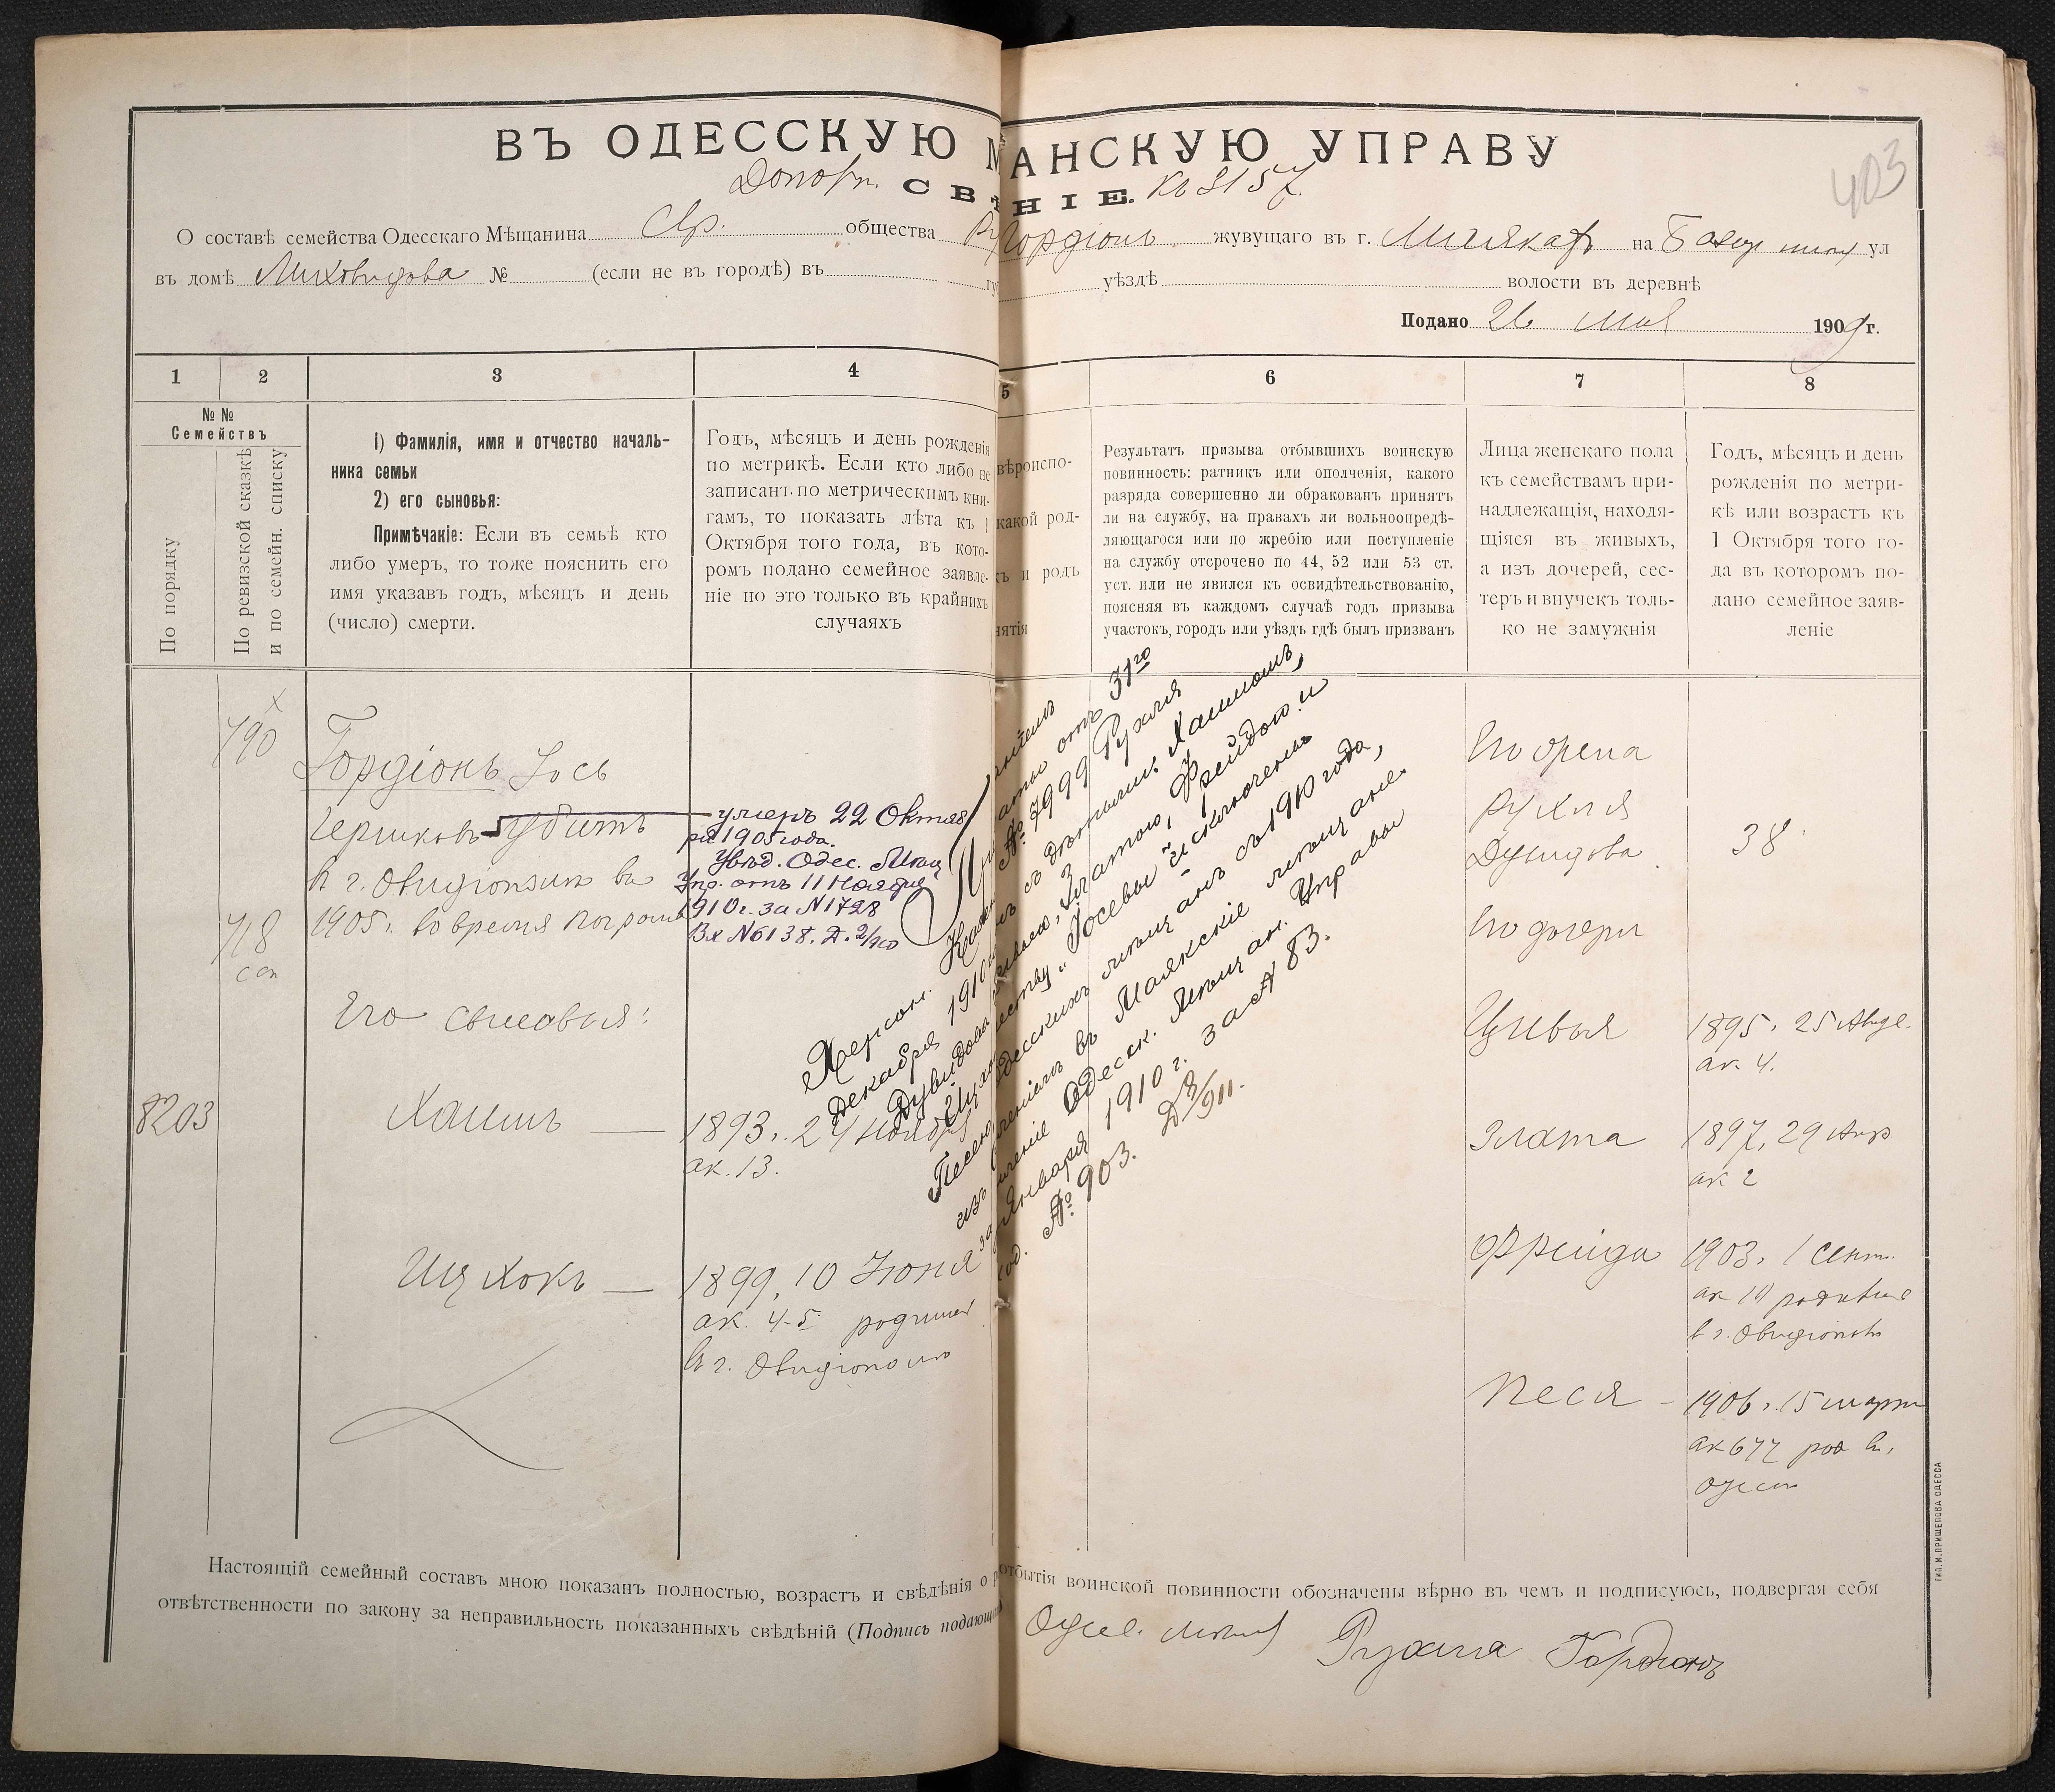 403
ВЪ ОДЕССКУЮ М АНСКУЮ УПРАВУ
СВѢ НІЕ. къ 3157
О составѣ семейства Одесскаго Мѣщанина Евр. общества Гордіонъ жувущаго въ г. на ул
въ домѣ № (если не въ городѣ) въ гу уѣздѣ волости въ деревнѣ
Подано 26 Мая 1909 г.
1 2 3 4 5 6 7 8
№№
Семействъ
По порядку
По ревизской сказкѣ
и по семейн. списку
1) Фамилія, имя и отчество началь-
ника семьи
2) его сыновья:
Примѣчакіе: Если въ семьѣ кто
либо умеръ, то тоже пояснить его
имя указавъ годъ, мѣсяцъ и день
(число) смерти.
Годъ, мѣсяцъ и день рожденія
по метрикѣ. Если кто либо не
записанъ по метрическимъ кни-
гамъ, то показать лѣта къ 1
Октября того года, въ кото-
ромъ подано семейное заявле-
ніе но это только въ крайнихъ
случаяхъ
вѣроиспо-
какой род-
ъ и родъ
нятія
Результатъ призыва отбывшихъ воинскую
повинность: ратникъ или ополченія, какого
разряда совершенно ли обракованъ принятъ
ли на службу, на правахъ ли вольноопредѣ-
ляющагося или по жребію или поступленіе
на службу отсрочено по 44, 52 или 53 ст.
уст. или не явился къ освидѣтельствованію,
поясняя въ каждомъ случаѣ годъ призыва
участокъ, городъ или уѣздъ гдѣ былъ призванъ
Лица женскаго пола
къ семействамъ при-
надлежащія, находя-
щіяся въ живыхъ,
а изъ дочерей, сес-
теръ и внучекъ толь-
ко не замужнія
Годъ, мѣсяцъ и день
рожденія по метри-
кѣ или возрастъ къ
1 Октября того го-
да въ котороμъ по-
дано семейное заяв-
леніе
790
Гордіонъ Іось
Гершковъ убитъ
в г. Овидіополи въ
1905 г. во время погрома
718
умеръ 22 Октяб
ря 1905 года.
Увѣд. Одес. Мѣщ
Упр. отъ 11 Ноября
1910 г. за N 1728
Вх N 6138. Д. 2/910
Его сыновья:
8203
Хаимъ — 1893 г. 24 Ноября
ак. 13.
Ицхокъ — 1899, 10 Іюня
ак. 4-5 родился
в г. Овидіополи
Херсон. Казен
отъ 31го
Декабря 1910 № 7999 Рухля
Дувидова съ дѣтьми: Хаимомъ,
Златою, Фрейдою и
Песею Іосевы исключены
Одесскихъ мѣщанъ съ 1910 года,
въ Маякскіе мѣщане.
Одесск. Мѣщан. Управы
Января 1910 г. за № 83.
№ 903. Д 3/911.
Его жена
Рухля
Дувидова 38
Его дочери
Цивья 1895 г. 25 Авгу.
ак. 4.
Злата 1897, 29 Апр
ак 2
Фрейда 1903 г. 1 Сент.
ак 10 родивше
в г. Овидіополѣ
Песя — 1906 г. 15 марта
ак 677 род в г.
Одессѣ
Настоящій семейный составъ мною показанъ полностью, возрастъ и свѣдѣнія о отбытія воинской повинности обозначены вѣрно въ чемъ и подписуюсь, подвергая себя
отвѣтственности по закону за неправильность показанныхъ свѣдѣній (Подпись подающ Рухля Гордіонъ
ТИП. М. ПРИЩЕПОВА ОДЕССА